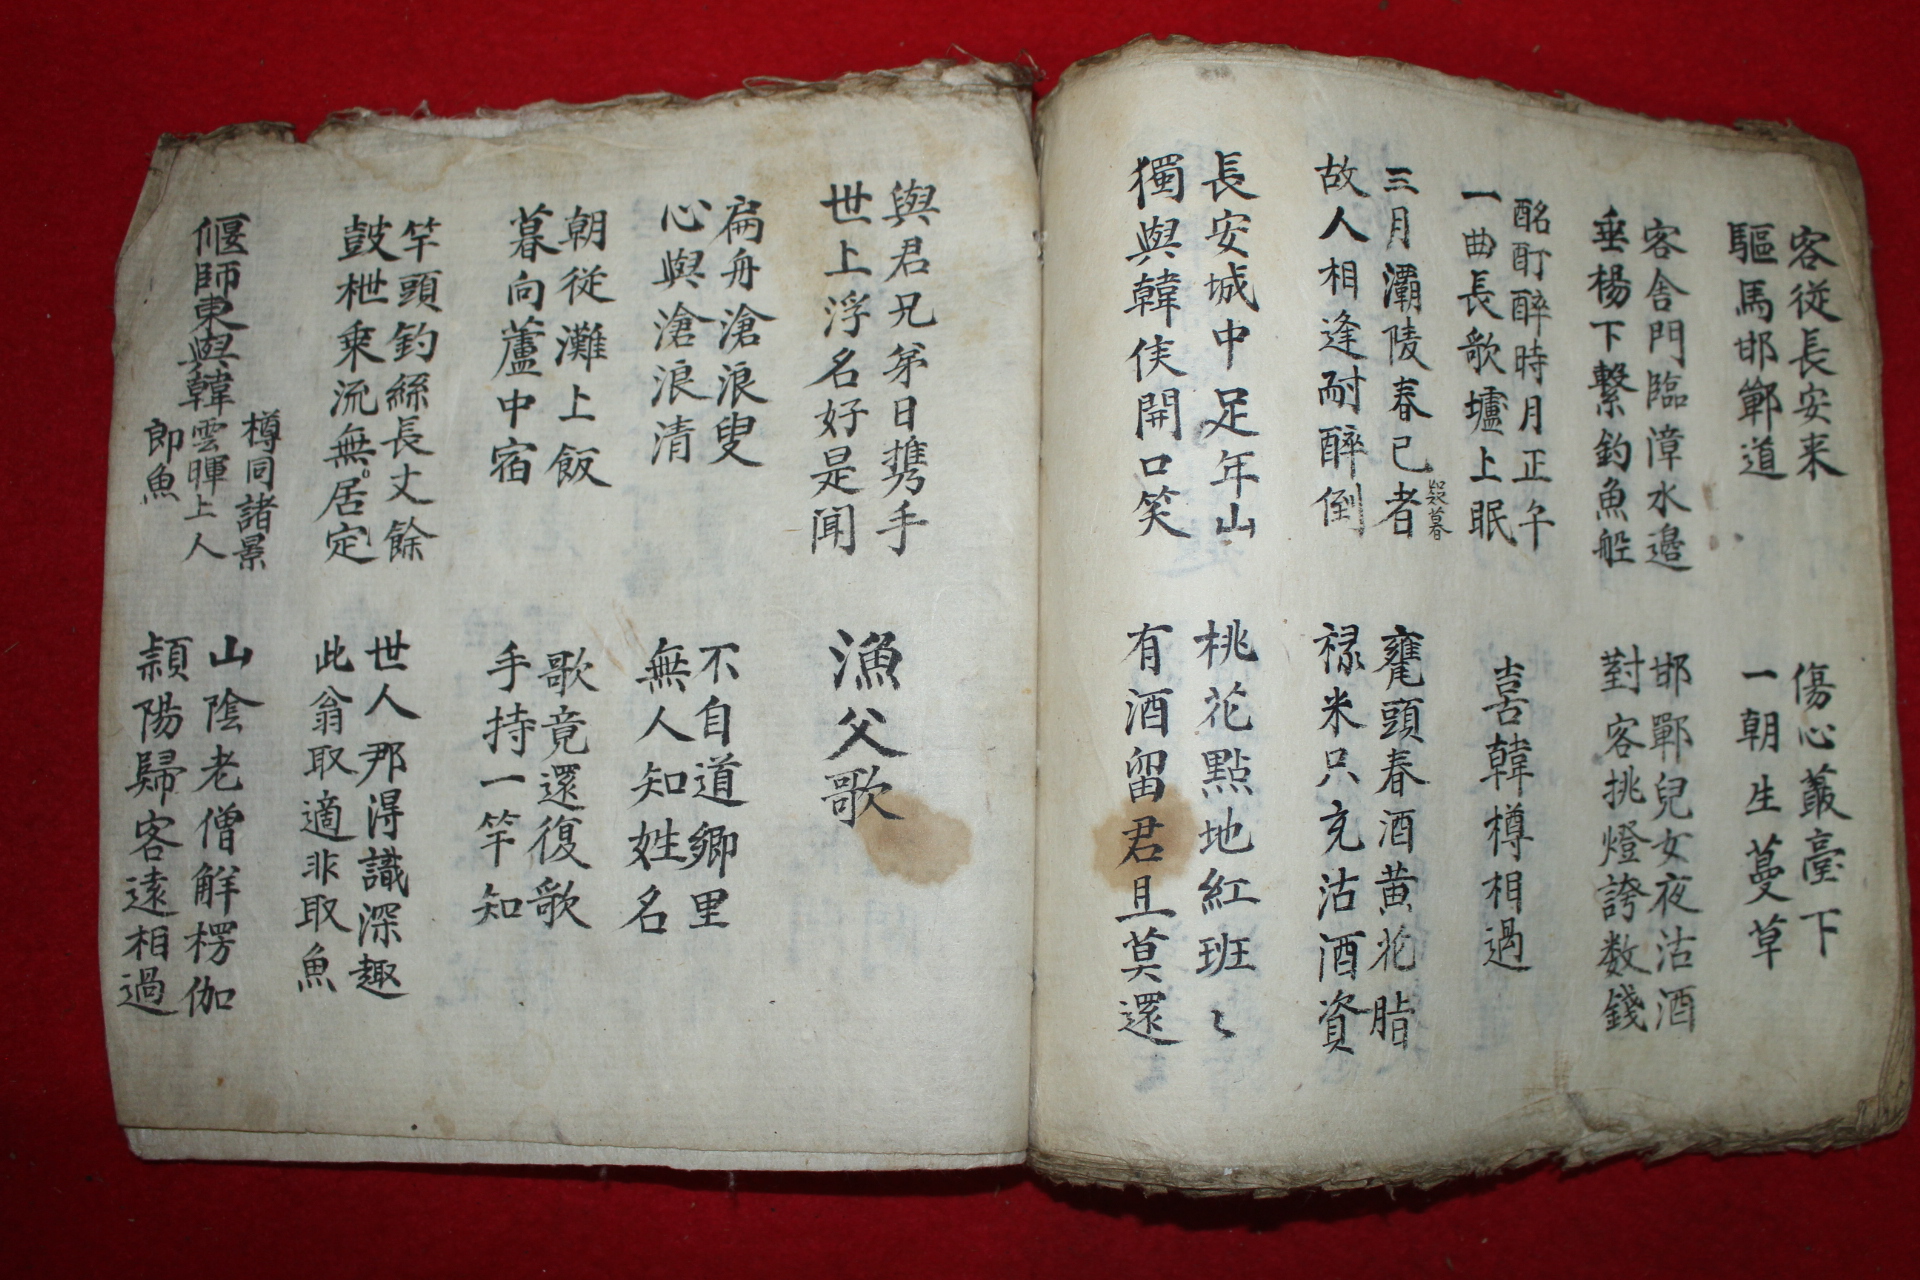 客従長安来
驅馬邯鄲道
傷心叢臺下
一朝生蔓草
客舎門臨漳水邉
垂楊下繋釣魚舩
邯鄲兒女夜沽酒
對客挑燈誇数錢
酩酊醉時月正午
一曲長歌壚上眠
喜韓樽相過
三月灞陵春已者
疑暮
故人相逢耐醉倒
甕頭春酒黄花脂
禄米只充沽酒資
長安城中足年山
獨與韓侯開口笑
桃花點地紅班〻
有酒留君且莫還
與君兄弟日携手
世上浮名好是闻
漁父歌
扁舟滄浪叟
心與滄浪清
不自道鄉里
無人知姓名
朝従灘上飯
暮向蘆中宿
歌竟還復歌
手持一竿知
竿頭釣絲長丈餘
鼓枻乗流無居定
世人那得識深趣
此翁取適非取魚
偃師東與韓
樽同諸景
雲暉上人
即魚
山陰老僧解楞伽
潁陽歸客遠相過